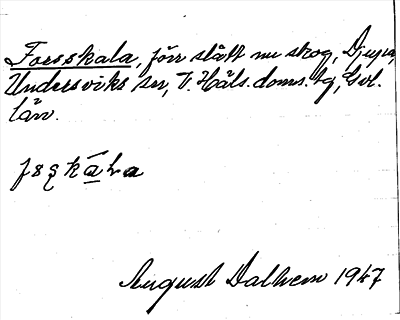 Forsskala, förr slått nu skog, Djupa,
Undersviks sn, V. Häls. doms. tg, Gvl.
län.
August Dalhem 1947